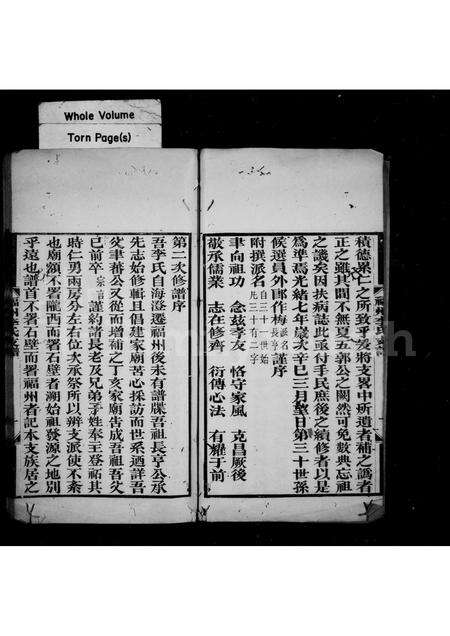 Whole Volume
Torn Page(s)
積德累仁之所致乎爰將支畧中所遺者補之譌者
正之雖其間不無夏五郭公之闕然可免數典忘祖
之譏矣因扶病誌此亟付手民庶後之續修者以是
為準焉光緒七年歲次辛巳三月望日第三十世孫
候選員外郎作梅派名長亨謹序
附撰派名自三十一世始凡三十有二字
聿向祖功 念茲孝友 恪守家風 克昌厥後
敬承儒業 志在修齊 衍傳心法 有耀于前
第二次修譜序
吾李氏自海澄遷福州後未有譜牒吾祖長亨公承
先志始修輯且倡建家廟苦心採訪而世系迺詳吾
父聿蕃公又從而增補之丁亥家廟告成吾祖吾父
已前卒宗言謹約諸長老及兄弟子姓奉主登祔其
時仁男兩房分左右位次承祭所以辨支派使不紊
也廟額不署隴西而署石壁者溯始祖發源之地別
乎遠也譜首不署石壁而署福州者記本支族居之